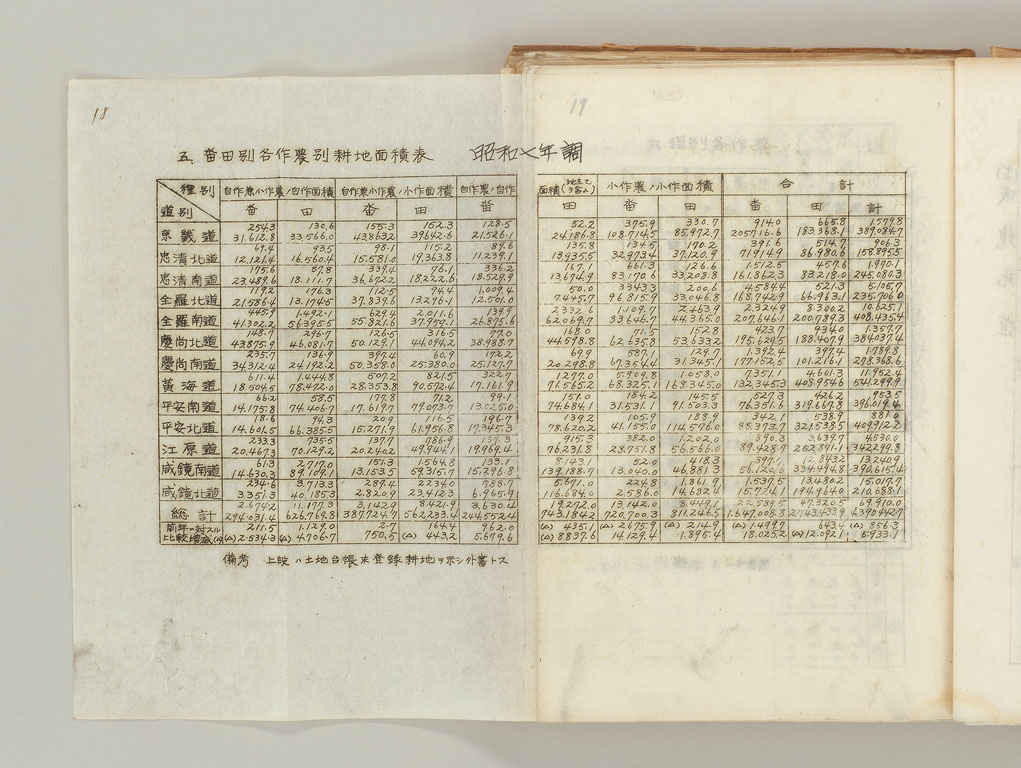 18
19
五、畓田別各作農別耕地面積表 昭和七年調
種別 自作兼小作農ノ自作面積 自作兼小作農ノ小作面積 自作農ノ自作 面積(地主ヲ含ム) 小作農ノ小作面積 合計
道別 畓 田 畓 田 畓 田 畓 田 畓 田 計
254.3 130.6 155.3 152.3 128.5 52.2 375.9 330.7 914.0 665.8 1,579.8
京畿道 31,612.8 33,566.0 43,863.2 39,642.6 21,526.1 24,186.8 108,714.5 85,972.7 205,716.6 183,368.1 389,084.7
69.4 93.5 98.1 115.2 89.6 135.8 134.5 170.2 391.6 514.7 906.3
忠清北道 12,121.4 16,560.4 15,581.0 19,363.8 11,239.1 13,935.5 32,973.4 37,120.9 71,914.9 86,980.6 158,895.5
175.6 87.8 339.4 76.1 336.2 167.1 661.3 126.6 1,512.5 457.6 1,970.1
忠清南道 23,489.6 18,111.7 36,672.2 18,222.6 18,529.9 13,674.9 83,170.6 33,208.8 161,862.3 83,218.0 245,080.3
119.2 176.3 112.5 94.4 1,009.4 50.0 3,343.3 200.6 4,584.4 521.3 5,105.7
全羅北道 21,586.4 13,174.5 37,839.6 13,296.1 12,501.0 7,445.7 96,815.9 33,046.8 168,742.9 66,963.1 235,706.0
445.9 1,492.1 629.4 2,011.6 139.9 2,332.6 1,109.7 2,463.9 2,324.9 8,300.2 10,625.1
全羅南道 41,302.2 56,395.5 55,821.6 37,959.1 26,875.6 62,069.7 83,646.7 44,365.0 207,646.1 200,789.3 408,435.4
148.7 296.7 126.5 316.5 77.0 168.0 71.5 152.8 423.7 934.0 1,357.7
慶尚北道 43,875.9 46,081.7 50,129.1 44,094.2 38,988.7 44,598.8 62,635.8 53,633.2 195,629.5 188,407.9 384,037.4
235.7 136.9 397.4 60.9 172.2 69.9 587.1 129.7 1,392.4 397.4 1,789.8
慶尚南道 34,312.4 24,192.2 50,358.0 25,380.0 25,127.7 20,298.8 67,354.4 31,345.1 177,152.5 101,216.1 278,368.6
611.4 1,444.8 507.2 821.5 322.7 1,277.0 5,909.8 1,058.0 7,351.1 4,601.3 11,952.4
黄海道 18,504.5 78,472.0 28,353.8 90,572.4 17,161.9 71,565.2 68,325.1 168,345.0 132,345.3 408,954.6 541,299.9
66.2 58.5 177.8 71.2 99.1 151.0 184.2 145.5 527.3 426.2 953.5
平安南道 14,175.8 74,406.7 17,619.7 79,073.7 13,025.0 74,684.1 31,531.1 91,503.3 76,351.6 319,667.8 396,019.4
18.6 94.3 120.9 116.5 196.7 139.2 105.9 188.9 342.1 538.9 881.0
平安北道 14,601.5 66,385.5 15,271.9 61,956.8 17,345.3 78,620.2 41,155.0 114,576.0 88,373.7 321,538.5 409,912.2
233.3 735.5 137.7 786.9 137.3 915.3 382.0 1,202.0 890.3 3,639.7 4,530.0
江原道 20,467.3 70,129.2 20,240.2 49,944.1 19,969.4 76,231.8 28,751.8 56,566.0 89,428.7 252,871.1 342,299.8
61.3 2,717.0 151.3 1,564.8 133.1 8,143.1 52.0 418.3 397.7 12,843.2 13,240.9
咸鏡南道 14,630.3 89,109.1 13,153.5 59,315.7 15,296.8 139,188.7 13,040.0 46,881.3 56,120.6 334,494.8 390,615.4
234.6 3,713.3 289.4 2,234.0 788.7 5,671.0 224.8 1,861.9 1,537.5 13,480.2 15,017.7
咸鏡北道 3,351.3 40,185.3 2,820.9 23,412.3 6,965.9 116,684.0 2,586.0 14,682.4 15,724.1 194,964.0 210,688.1
2,674.2 11,177.3 3,142.9 8,421.9 3,630.4 19,272.0 13,142.0 8,449.1 22,589.5 47,320.5 69,910.0
総計 294,031.4 626,769.8 387,724.7 562,233.4 244,552.4 743,184.2 720,700.3 811,246.5 1,647,008.8 2,743,433.9 4,390,442.7
前年ニ対スル 211.5 1,129.0 2.7 164.4 962.0 (△) 435.1 (△) 2,675.9 (△) 214.9 (△) 1,499.7 643.4 (△) 856.3
比較増減(△) (△) 2,534.3 (△) 4,706.7 750.5 (△) 443.2 5,679.6 (△) 8,837.6 14,129.4 1,895.4 18,025.2 (△) 12,092.1 5,933.1
備考 上段ハ土地台帳未登録耕地ヲ示シ外書トス